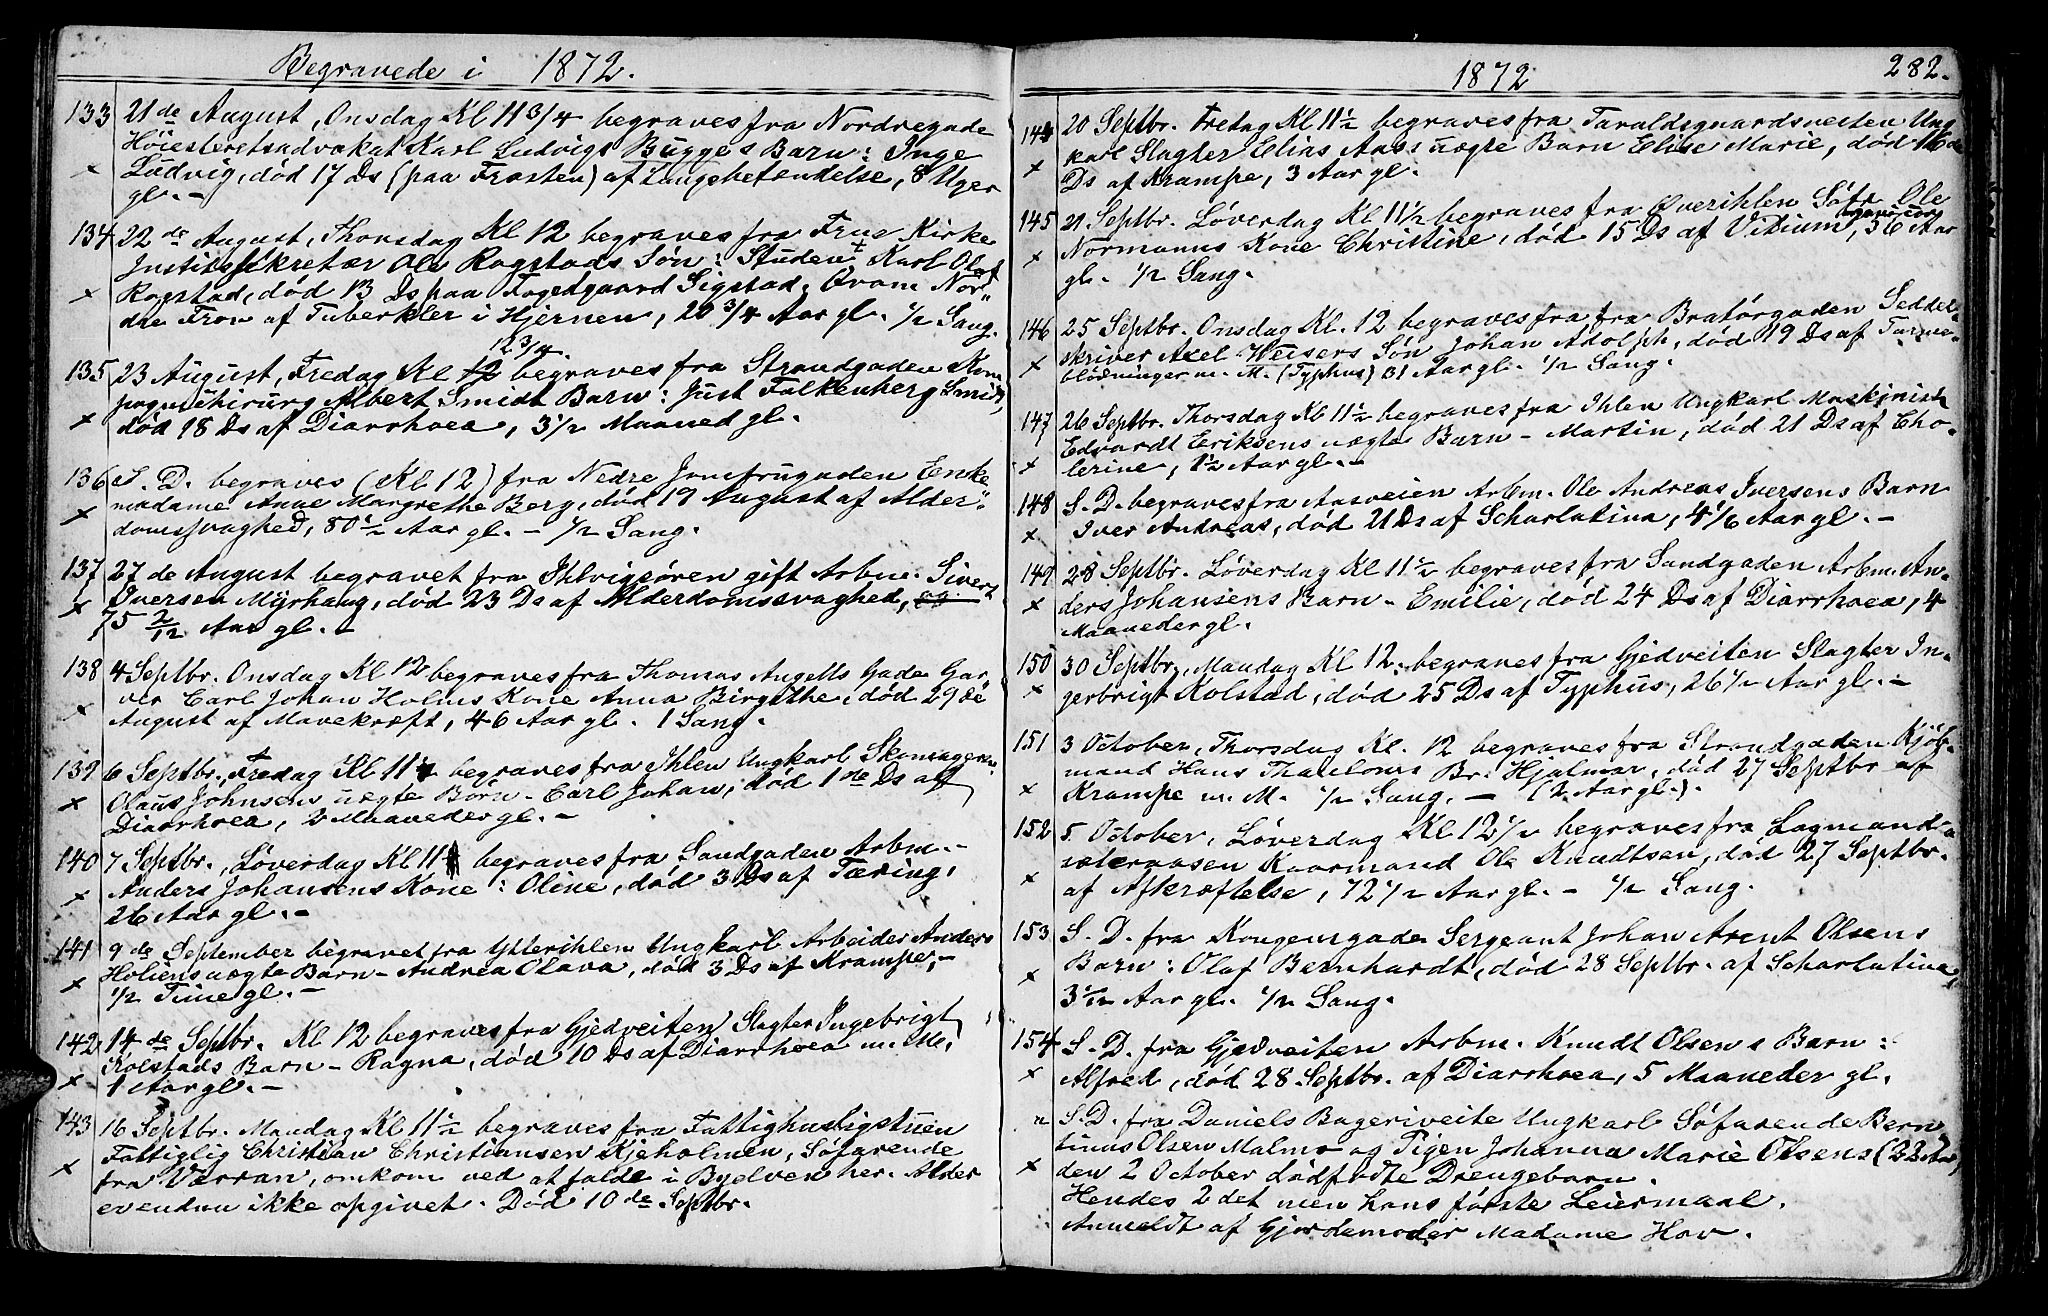 Begravede i 1872.
133 21de August, Onsdag Kl 11 3/4 begraves fra Nordregade
Höiesteretsadvokat Karl Ludvigs Bugges Barn: Inge
× Ludvig, död 17 Ds (paa Frosten) af Lungebetændelse, 8 Uger
gl. –
134 22de August, Thorsdag Kl 12 begraves fra Frue Kirke
Justitssekretær Ole Rogstads Sön: Student Karl Oluf
× Rogstad, död 13 Ds paa Fogedgaard Sigstad, Nor-
dre Fron af Tuberkler i Hjernen, 20 3/4 Aar gl. 1/2 Sang.
12 3/4.
135 23 August, Fredag Kl 12 begraves fra Strandgaden Kom
pagnichirurg Albert Smidt Barn: Just Falkenberg Smidt,
× död 18 Ds af Diarrhoea, 3 1/2 Maaned gl.
136 S. D. begraves (Kl 12) fra Nedre Jomfrugaden Enke
× madame Anne Margrethe Berg, död 19 August af Alder-
domssvaghed, 80 1/2 Aar gl. – 1/2 Sang.
137 27de August begravet fra Ihlvigsören gift Arbm. Sivert
× Iversen Myrhaug, död 23 Ds af Alderdomssvaghed, og
75 2/12 Aar gl. –
138 4 Septbr. Onsdag Kl 12 begraves fra Thomas Angells Gade Gar
ver Carl Johan Holms Kone Anna Birgithe, död 29de
× August af Mavekræft, 46 Aar gl. 1 Sang.
139 6 Septbr. Fredag Kl 11 begraves fra Ihlen Ungkarl Skomagersv.
× Olaus Johnsens uægte Barn – Carl Johan, död 1de Ds af
Diarrhoea, 2 Maaneder gl. –
140 7 Septbr., Löverdag Kl 11 begraves fra Sandgaden Arbm. –
× Anders Johansens Kone: Oline, död 3 Ds af Tæring,
26 Aar gl. –
141 9de September begravet fra Ytterihlen Ungkarl Arbeider Anders
× Holiens uægte Barn – Andrea Olava, död 3 Ds af Krampe, –
1/2 Time gl. –
142 14de Septbr. Kl 12 begraves fra Gjedveiten Slagter Ingebrigt
× Kolstads Barn – Ragna, död 10 Ds af Diarrhoea m. M.,
1 Aar gl. –
143 16 Septbr. Mandag Kl 11 1/2 begraves fra Fattighusligstuen
Fattiglig Christian Christiansen Kjeholmen, Söfarende
× fra Værran, omkom ved at falde i Byelven her. Alder
er endnu ikke opgivet. Död 10de Septbr.
1872 282.
144 20 Septbr. Fredag Kl 11 1/2 begraves fra Taraldsgaardsveiten Ung
karl Slagter Elias Aas's uægte Barn Elise Marie, död 16de
× Ds af Krampe, 3 Aar gl.
145 21 Septbr. Löverdag Kl 11 1/2 begraves fra Överihlen Söfr. Ole
× Normanns Kone Christine, död 15 Ds af Vitium, 36 Aar
gl. 1/2 Sang.
146 25 Septbr. Onsdag Kl. 12 begraves fra fra Bratörgaden Seddel-
× skriver Axel Weisers Sön Johan Adolph, död 19 Ds af Tarme-
blödninger m. M. (Typhus) 31 Aar gl. 1/2 Sang.
147 26 Septbr. Thorsdag Kl 11 1/2 begraves fra Ihlen Ungkarl Maskinist
Edvardt Eriksens uægte Barn – Martin, död 21 Ds af Cho-
× lerine, 1 1/2 Aar gl. –
148 S. D. begraves fra Aasveien Arbm. Ole Andreas Iversens Barn
× Iver Andreas, död 21 Ds af Scharlatina, 4 1/6 Aar gl. –
149 28 Septbr. Löverdag Kl 11 1/2 begraves fra Sandgaden Arbm. An-
× ders Johansens Barn – Emilie, död 24 Ds af Diarrhoea, 4
Maaneder gl.
150 30 Septbr., Mandag Kl 12. begraves fra Gjedveiten Slagter In-
× gerbrigt Kolstad, död 25 Ds af Typhus, 26 1/2 Aar gl. –
151 3 October, Thorsdag Kl. 12 begraves fra Strandgaden Kjöb-
mand Hans Thaulows Br: Hjalmar, död 27 Septbr af
× Krampe m. M. 1/2 Sang. – (2 Aar gl.).
152 5 October, Löverdag Kl 12 1/2 begraves fra Lagmand-
sæteraasen Kaarmand Ole Knudtsen, död 27 Septbr.
× af Afkræftelse, 72 1/2 Aar gl. – 1/2 Sang.
153 S. D. fra Kongensgade Sergeant Johan Arent Olsens
× Barn: Olaf Bernhardt, död 28 Septbr. af Scharlatina,
3 1/12 Aar gl. 1/2 Sang.
154 S. D. fra Gjedveiten Arbm. Knudt Olsens Barn:
× Alfred, död 28 Septbr. af Diarrhoea, 5 Maaneder gl.
n S. D. fra Daniels Bageriveite Ungkarl Söfarende Bern
tinus Olsen Malmo og Pigen Johanna Marie Olsens (22 Aar)
× den 2 October dödfödte Drengebarn.
Hendes 2det men hans förste Leiermaal.
Anmeldt af Gjordemoder Madame Hov.